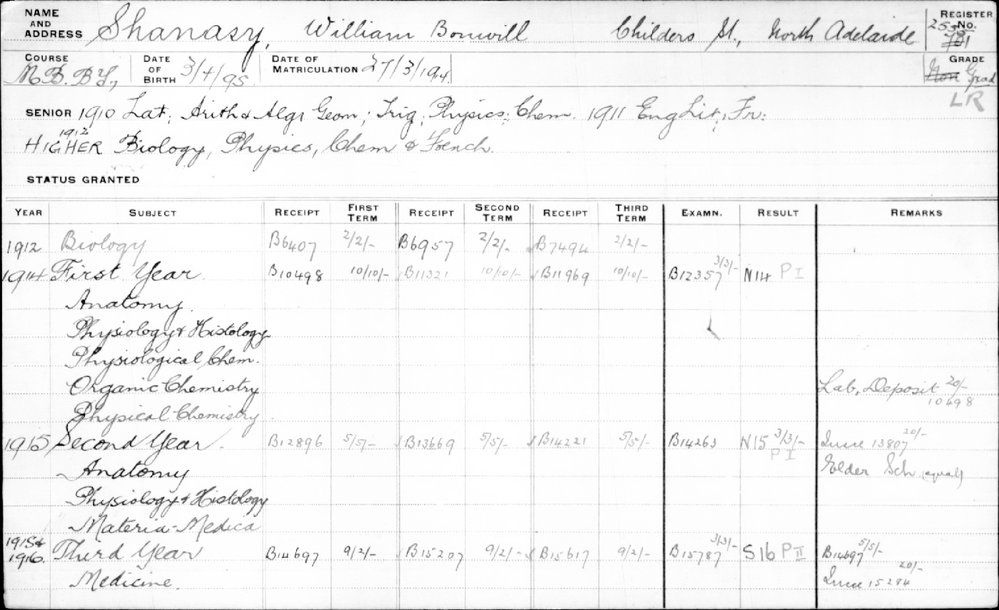 NAME AND ADDRESS Shanasy, William Bonwill Childers St., North Adelaide REGISTER No.
COURSE M.B. B.S., DATE OF BIRTH 3/4/95 DATE OF MATRICULATION 27/3/1914. GRADE Non Grad
LR
SENIOR 1910 Lat; Arith & Algr Geom; Trig; Physics; Chem. 1911 Eng Lit; Fr:
1912
HIGHER Biology, Physics, Chem & French.
STATUS GRANTED
YEAR SUBJECT RECEIPT FIRST TERM RECEIPT SECOND TERM RECEIPT THIRD TERM EXAMN. RESULT REMARKS
1912 Biology B6407 2/2/- B6957 2/2/- B7494 2/2/-
1914 First Year. B10498 10/10/- B11321 10/10/- B11969 10/10/- B12357 3/3/- N14 P I
Anatomy.
Physiology & Histology
Physiological Chem.
Organic Chemistry Lab. Deposit 20/- 10698
Physical Chemistry
1915 Second Year. B12896 5/5/- B13669 5/5/- B14221 5/5/- B14263 3/3/- N15 P I 13807 20/-
Anatomy Elder Sch (equal)
Physiology & Histology
Materia-Medica
1915 & 1916. Third Year B14697 9/2/- B15207 9/2/- B15617 9/2/- B15787 3/3/- S16 P II B14697 5/5/-
Medicine. 15294 20/-